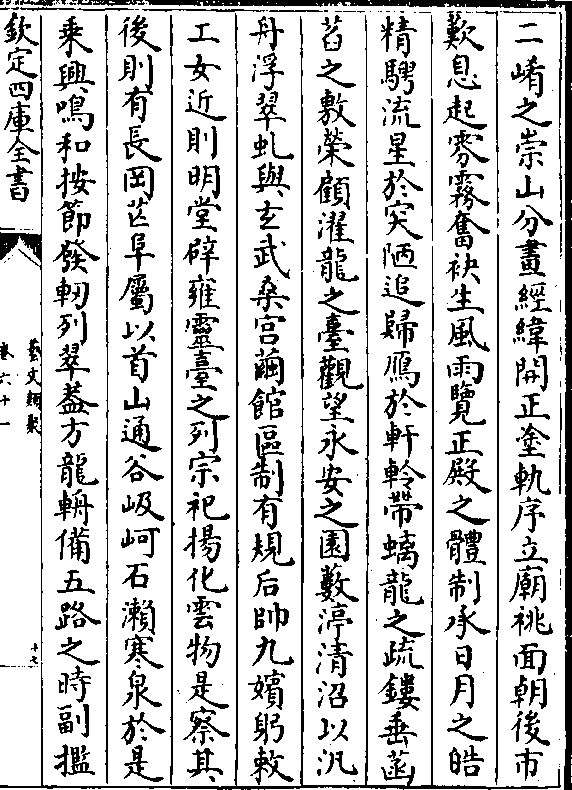 二崤之崇山分畫經緯開正塗軌序立廟祧面朝後市
歎息起雰霧奮袂生風雨覽正殿之體制承日月之皓
精騁流星於突陋追歸鴈於軒軨帶螭龍之疏鏤垂菡
萏之敷榮顧濯龍之臺觀望永安之園藪渟清沼以汎
舟浮翠虬與玄武桑宮繭館區制有規后帥九嬪躬敕
工女近則明堂辟雍靈臺之列宗祀揚化雲物是察其
後則有長岡芒阜屬以首山通谷岋岢石瀨寒泉於是
乘輿鳴和按節發軔列翠葢方龍輈備五路之時副㩜
欽定四庫全書
藝文類聚
卷六十一
十七